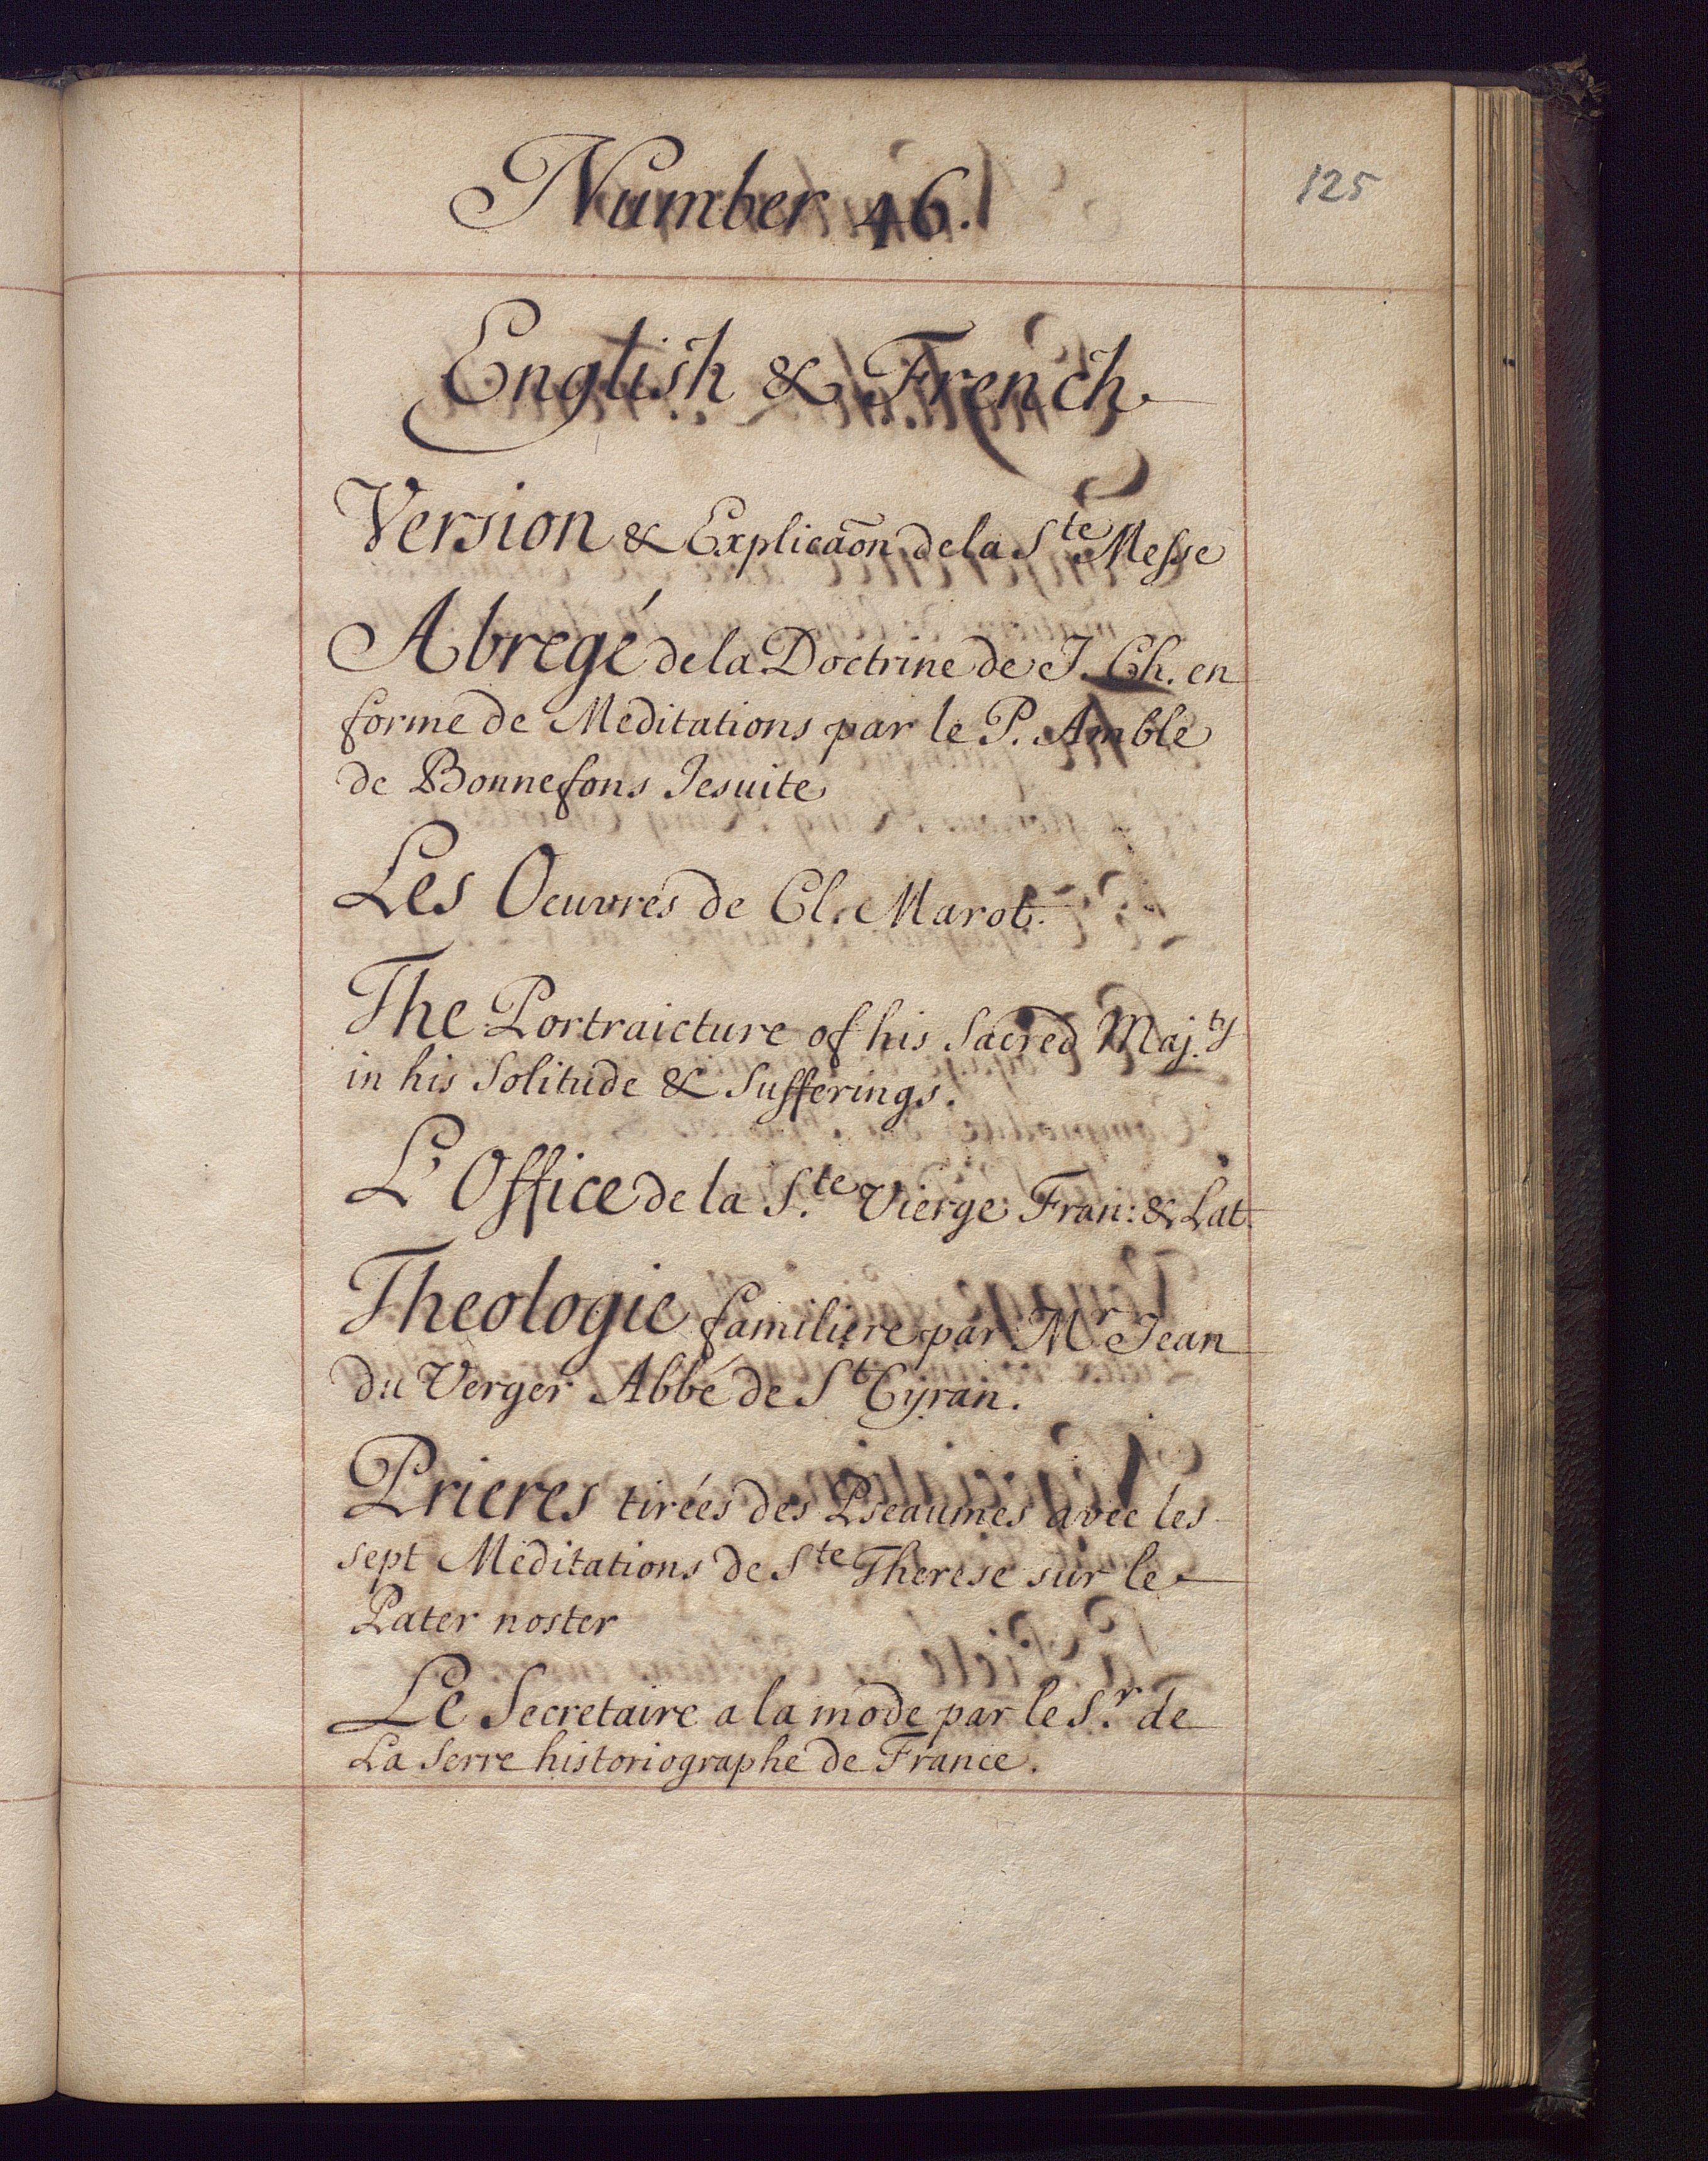 Number 46.
125
English & French
Version & Explicãon de la Ste Messe
Abregé de la Doctrine de J. Ch. en
forme de Meditations par le P. Amble
de Bonnefons Jesuite
Les Oeuvres de Cl. Marot.
The Portraicture of his Sacred Maj.ty
in his Solitude & Sufferings.
L'Office de la S.te Vierge Fran: & Lat.
Theologie familiere par Mr Jean
du Verger Abbé de St Cyran.
Prieres tirées des Pseaumes avec les
sept Meditations de Ste Therese sur le
Pater noster
Le Secretaire a la mode par le S.r de
La Serre historiographe de France.